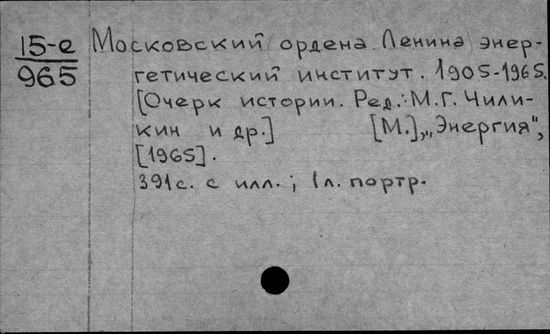 15-е
965
Московский ордена Ленина энер-
гетический институт. 1905-1965.
[Очерк истории. Ред.: М.Г. Чили-
кин и др.] [М.], „Энергия",
[1965].
391с. с илл.; 1л. портр.